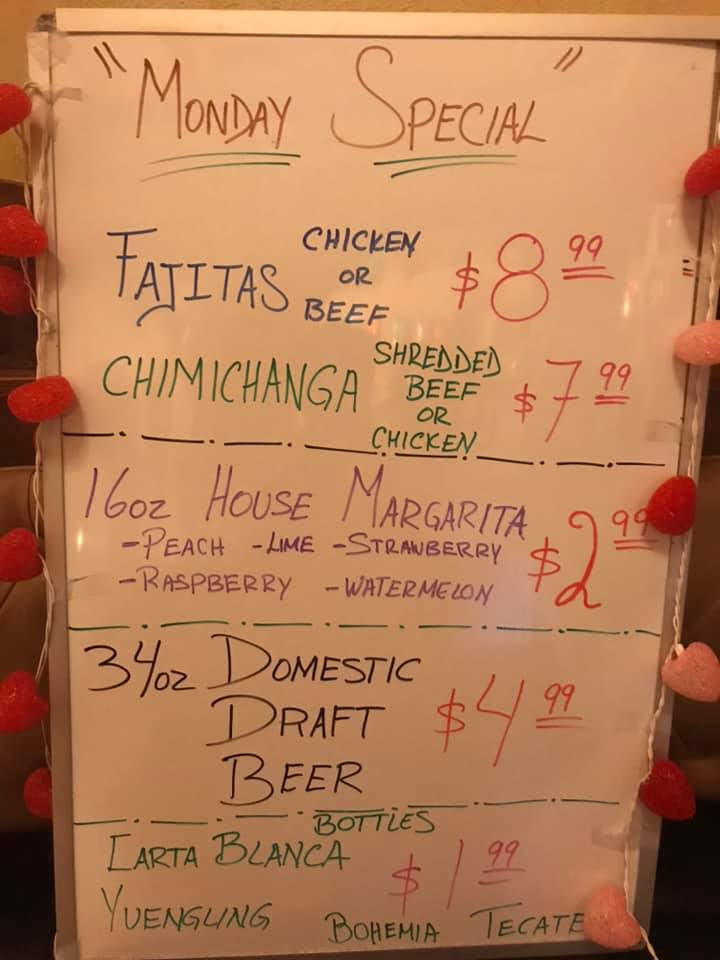 "MONDAY SPECIAL"
FAJITAS CHICKEN OR BEEF $8.99
CHIMICHANGA SHREDDED BEEF OR CHICKEN $7.99
16oz HOUSE MARGARITA $2.99
-PEACH -LIME -STRAWBERRY
-RASPBERRY -WATERMELON
34oz DOMESTIC
DRAFT $4.99
BEER
BOTTLES
CARTA BLANCA $1.99
YUENGLING BOHEMIA TECATE